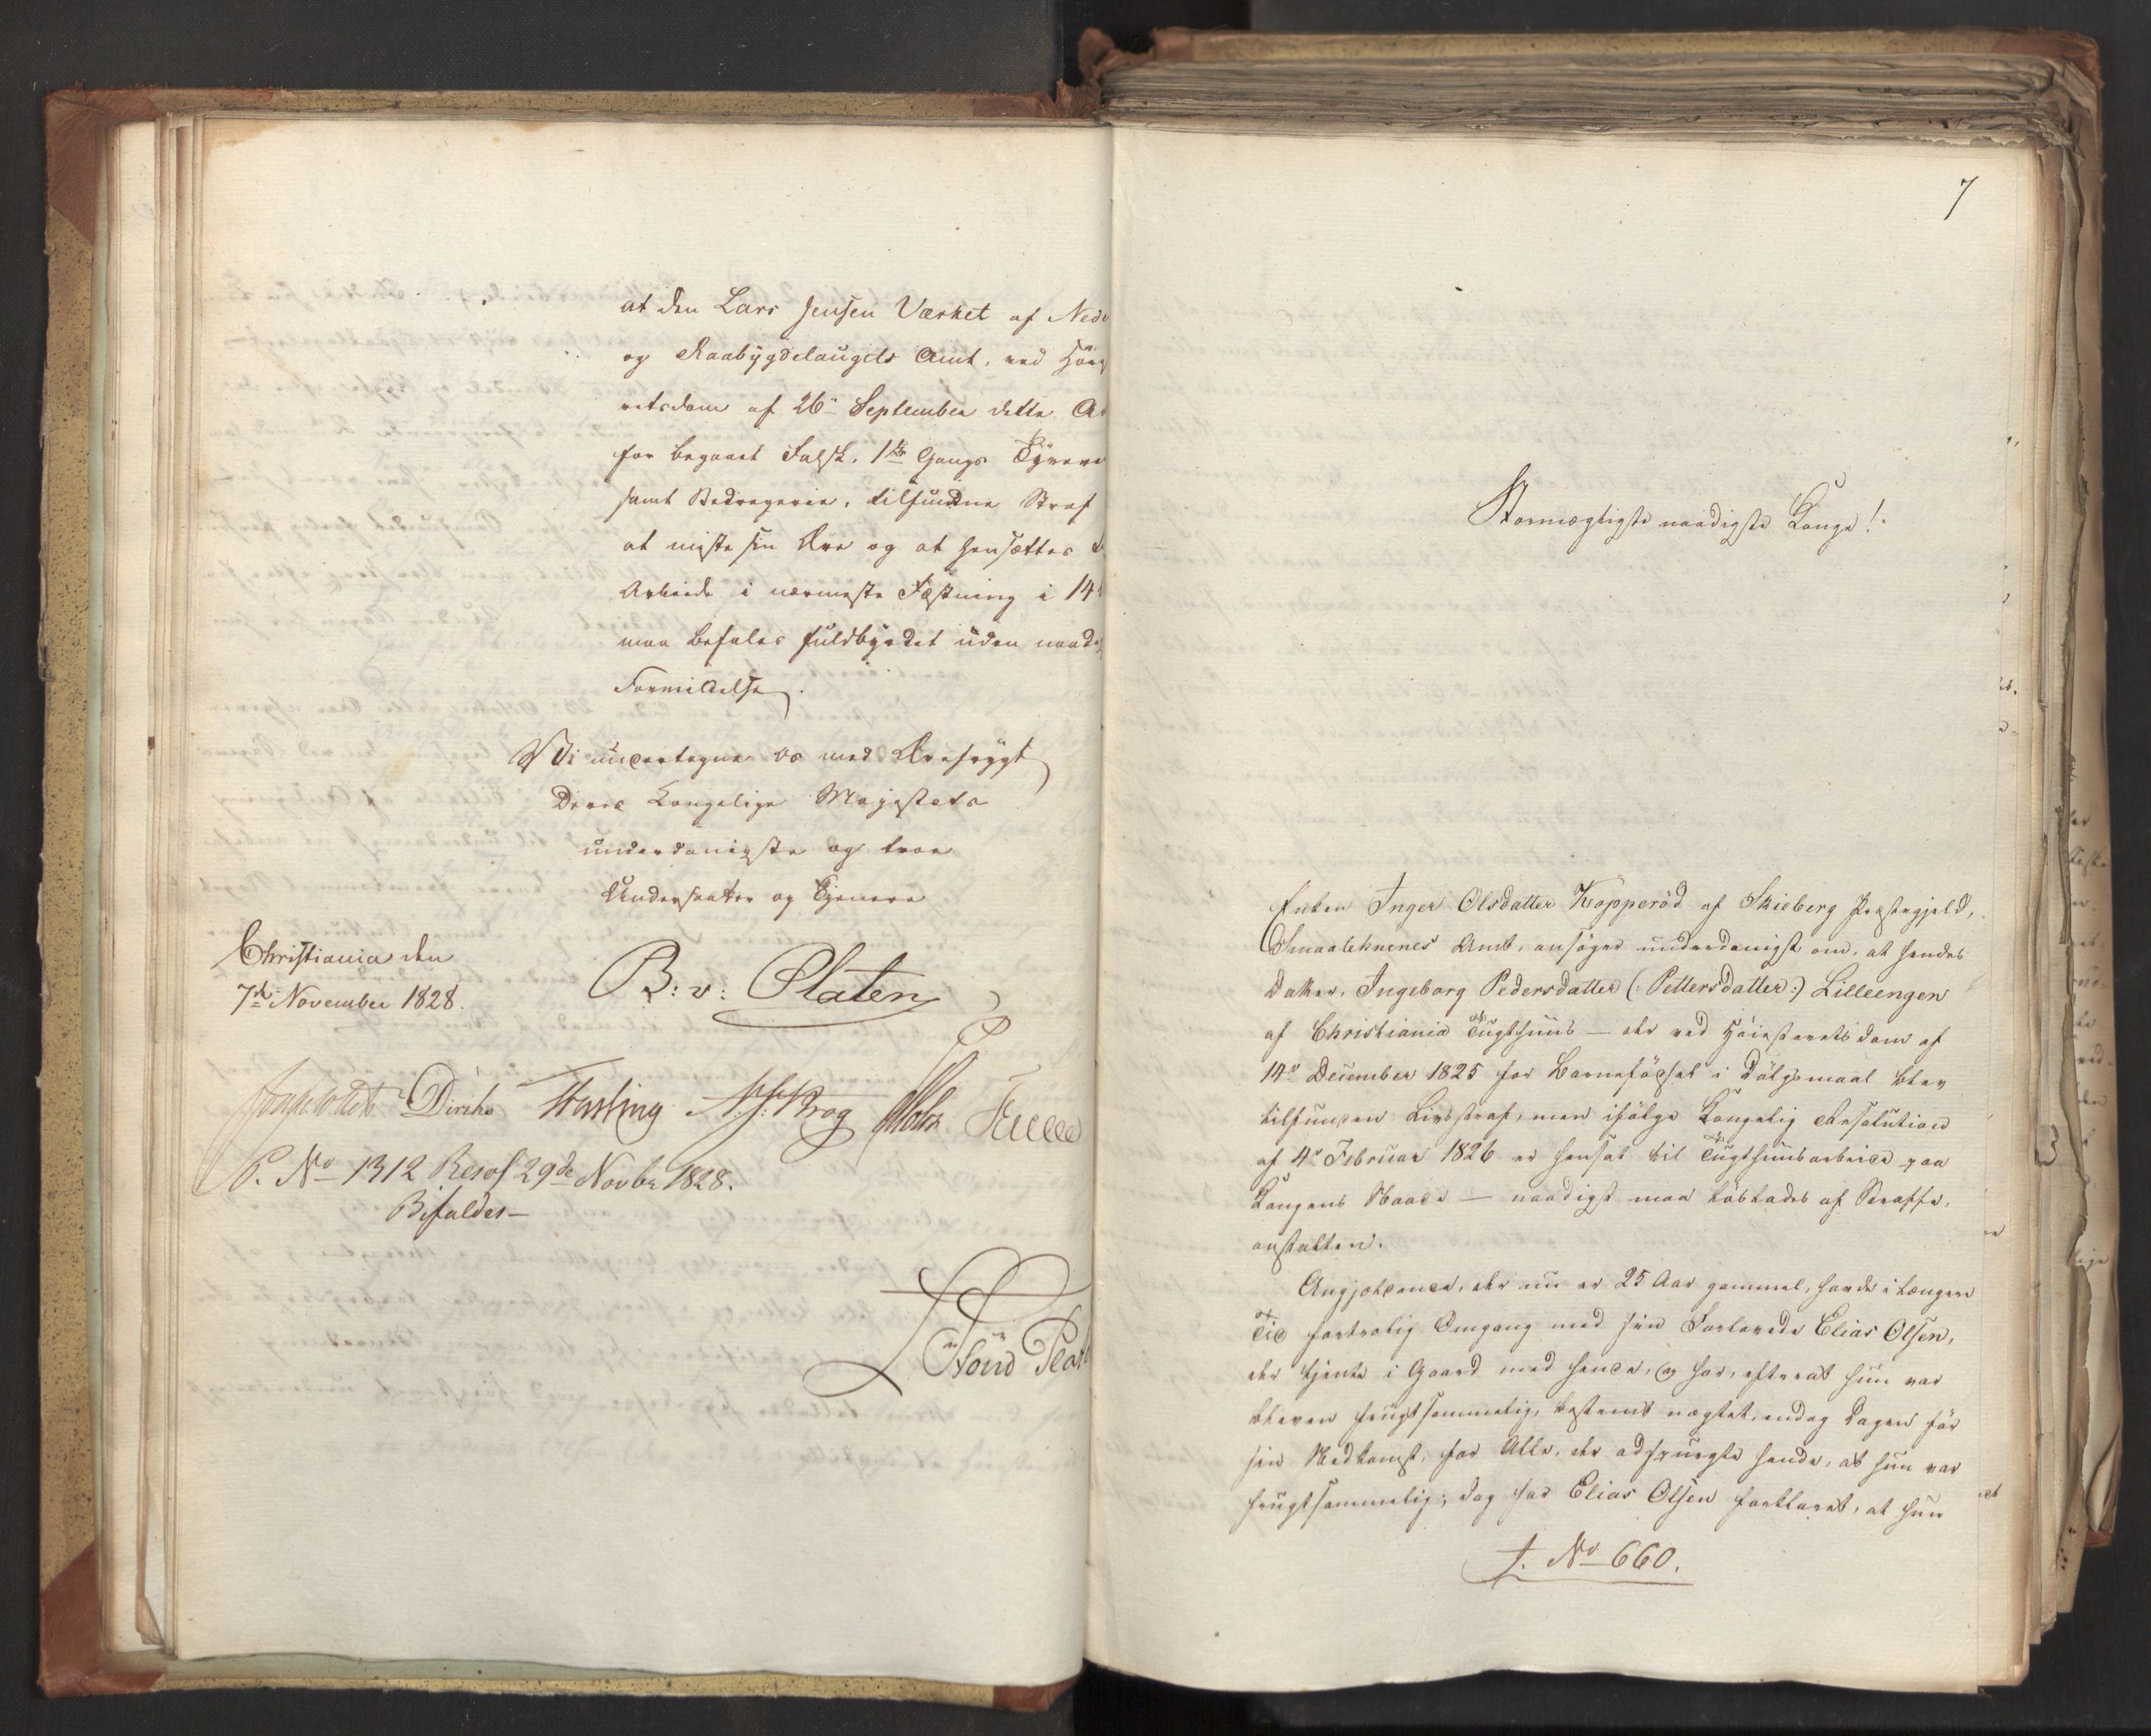 at den Lars Jensen Værket af Nede
og Raabygdelaugets Amt, ved Høies
retsdom af 26de September dette A
for begaaet Falsk, 1ste Gangs Tyverie
samt Bedragerie, tilfundne Straf
at miste sin Ære og at hensættes t
Arbeide i nærmeste Fæstning i 14
maa befales fuldbyrdet uden naadig
Formildelse.
Vi undertegne os med Ærefrygt
Deres Kongelige Majestæts
underdanigste og troe
Undersaatter og Tjenere
Christiania den
7de November 1828.
B: v: Platen
Diriks Krog Holst
P. No 1312 Resol 29de Novbr 1828.
Bifaldes
7
Stormægtigste naadigste Konge!
Enken Inger Olsdatter Kopperöd af Skieberg Præstegjeld,
Smaalehnenes Amt, ansöger underdanigst om, at hendes
Datter, Ingeborg Pedersdatter (: Pettersdatter:) Lilleengen
af Christiania Tugthuus – der ved Höiesteretsdom af
14de December 1825 for Barnefödsel i Dölgsmaal blev
tilfunden Livsstraf, men ifölge Kongelig Resolution
af 4de Februar 1826 er hensat til Tugthuusarbeide paa
Kongens Naade – naadigst maa löslades af Straffe-
anstalten.
Angjeldende, der nu er 25 Aar gammel, havde i længere
Tid fortrolig Omgang med sin Forlovede Elias Olsen,
der tjente i Gaard med hende, og har, efterat hun var
bleven frugtsommelig, bestemt nægtet, endog Dagen för
sin Nedkomst, for Alle, der adspurgte hende, at hun var
frugtsommelig; dog har Elias Olsen forklaret, at hun
J. No 660.